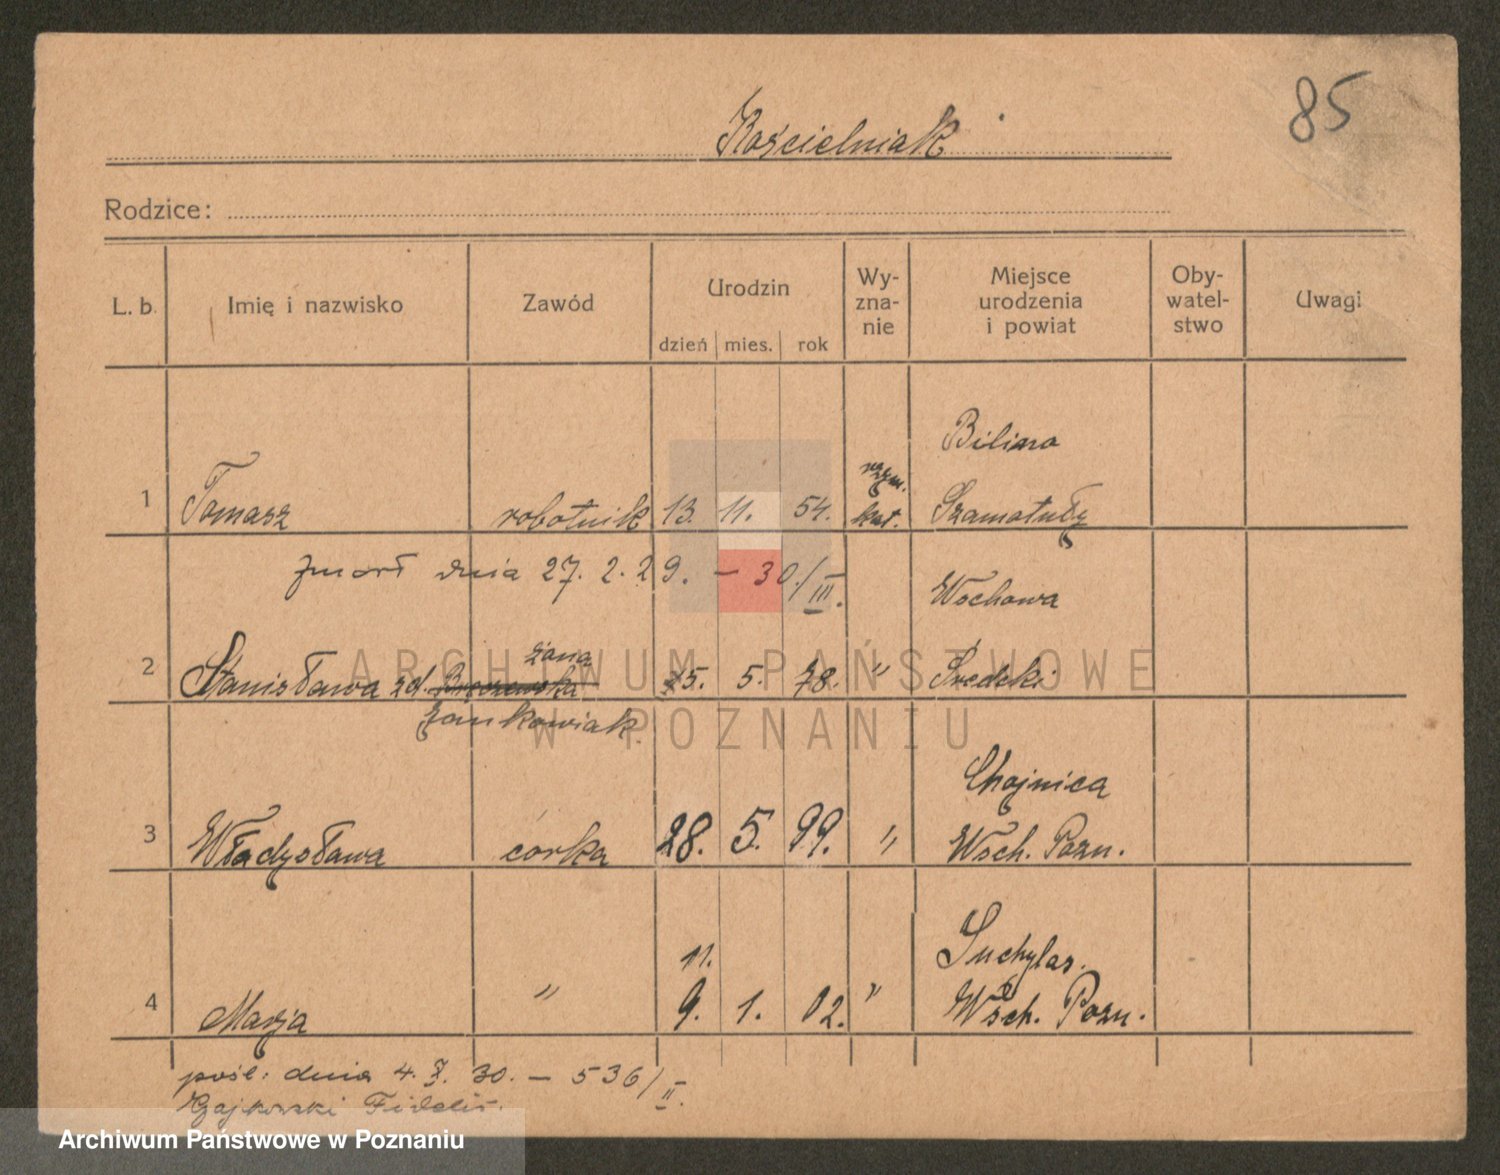 85
Kościelniak
Rodzice:
L. b. Imię i nazwisko Zawód Urodzin dzień mies. rok Wy-zna-nie Miejsce urodzenia i powiat Oby-watel-stwo Uwagi
Bilina
1 Tomasz robotnik 13. 11. 54. rzym. kat. Szamotuły
zmarł dnia 27. 2. 29. – 30/III.
Wochowa
żona
2 Stanisława zd. 25. 5. 78. " Średzki
Jankowiak.
Chojnica
3 Władysława córka 28. 5. 99. " Wsch. Pozn.
11. Suchylas.
4 Marja " 9. 1. 02. " Wsch. Pozn.
pośl: dnia 4. X. 30. – 536/II.
Gajkowski Fidelis.
ARCHIWUM PAŃSTWOWE
W POZNANIU
Archiwum Państwowe w Poznaniu